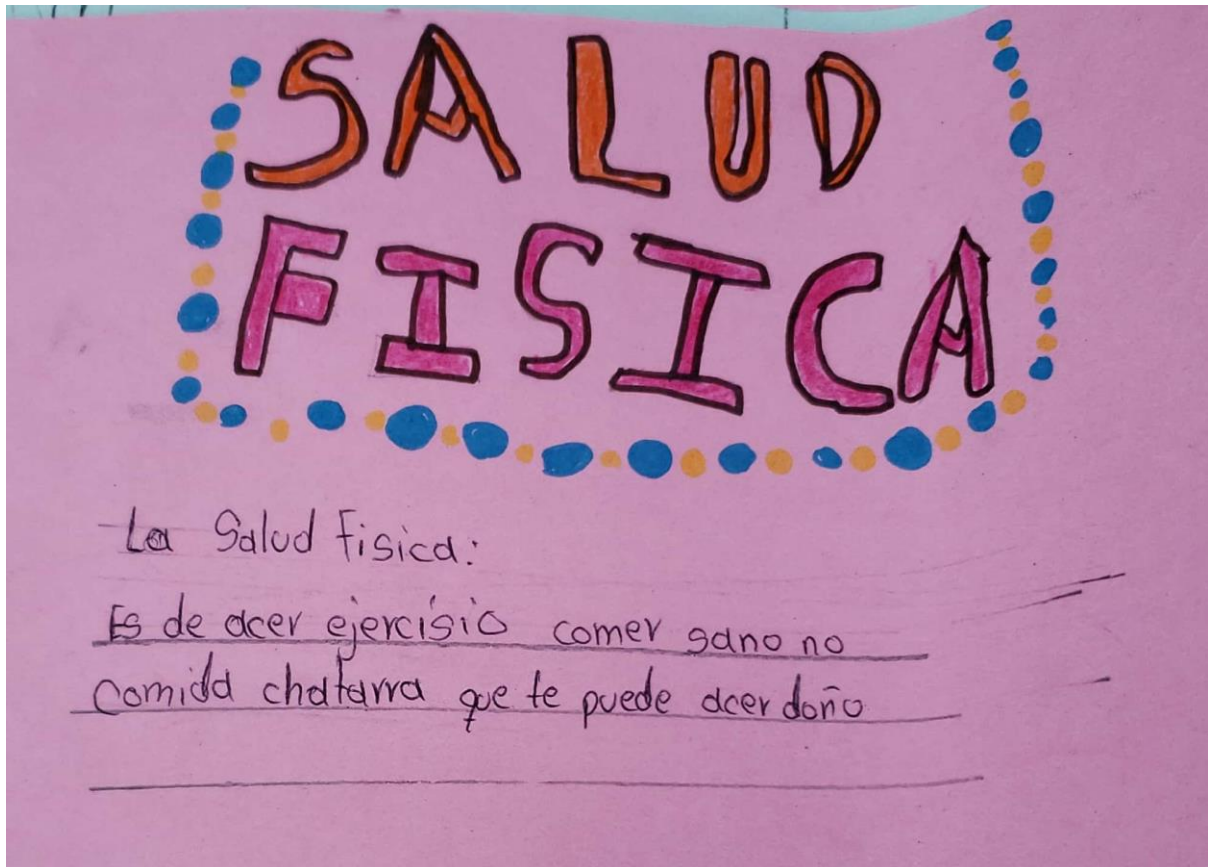 SALUD
FISICA
La Salud Fisica:
Es de acer ejercísio comer sano no
comida chatarra que te puede acer daño